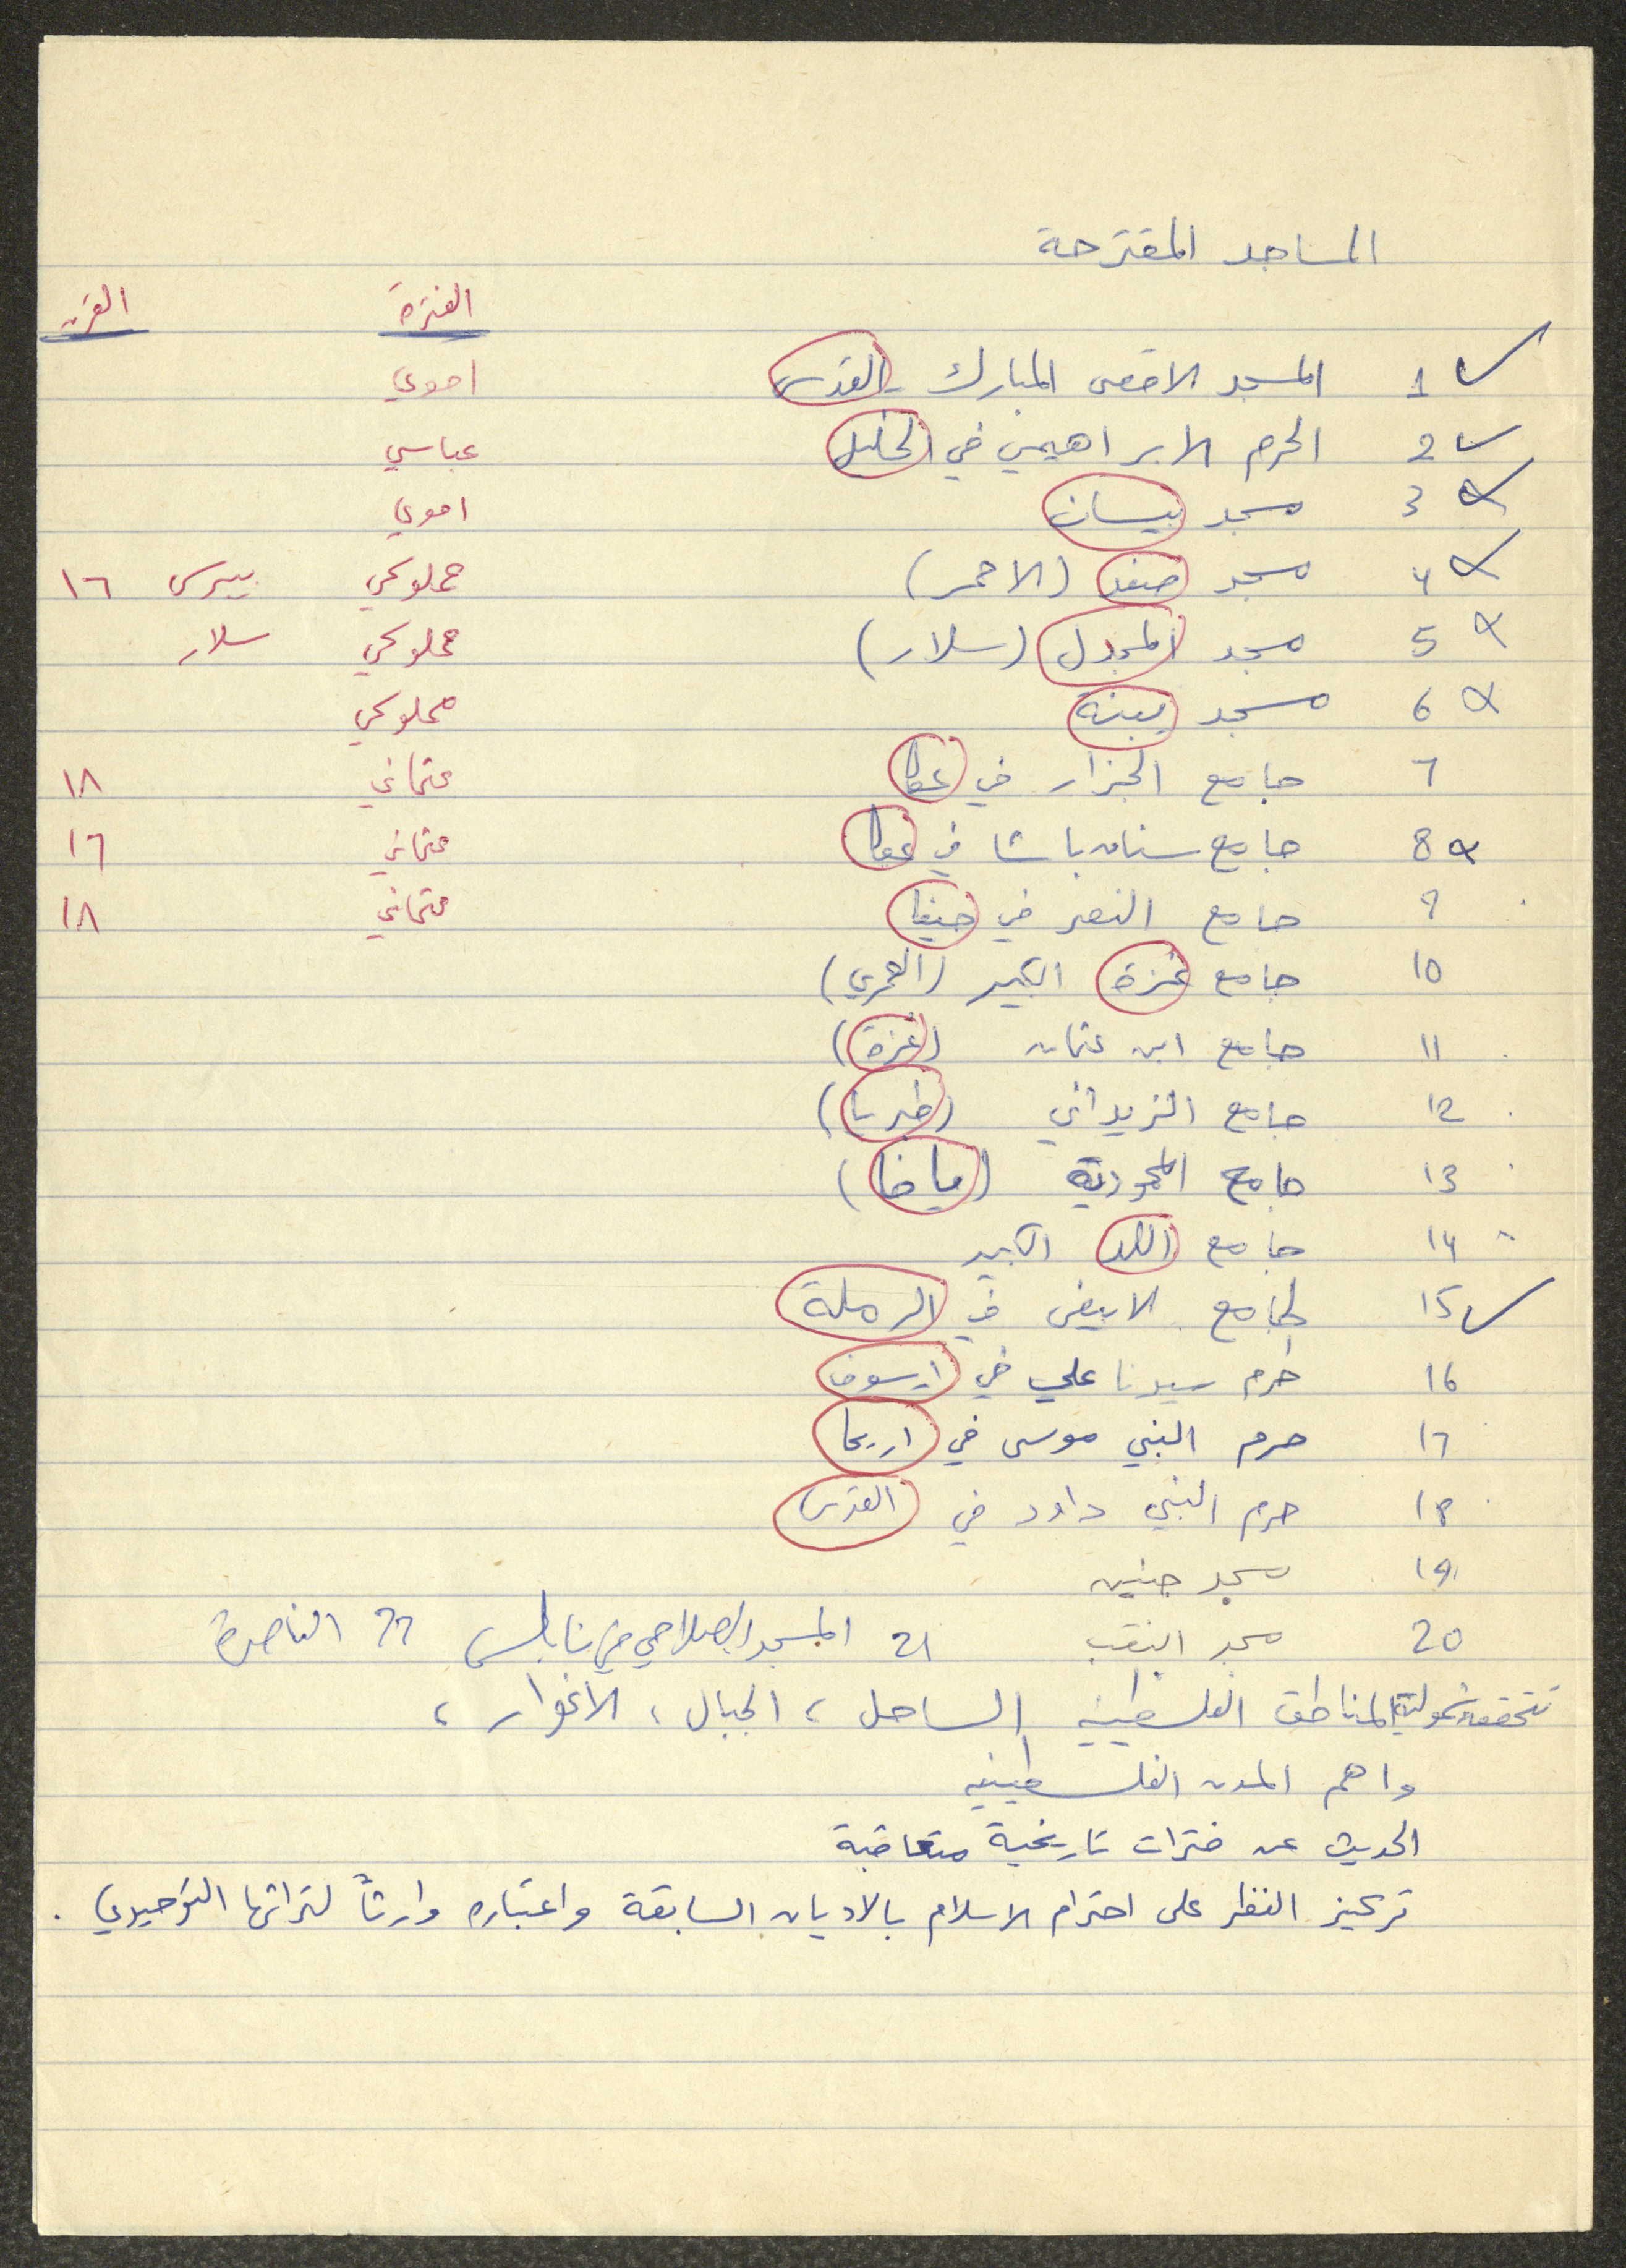 المساجد المقترحة
الفترة القرن
1 المسجد الاقصى المبارك - القدس اموي
2 الحرم الابراهيمي في الخليل عباسي
3 مسجد بيسان اموي
4 مسجد صفد (الاحمر) مملوكي بيبرس ١٦
5 مسجد المجدل (سلار) مملوكي سلار
6 مسجد يبنة مملوكي
7 جامع الجزار في عكا عثماني ١٨
8 جامع سنان باشا في عكا عثماني ١٦
9 جامع النصر في حيفا عثماني ١٨
10 جامع غزة الكبير (العمري)
11 جامع ابن عثمان (غزة)
12 جامع الزيداني (طبريا)
13 جامع المحمودية (يافا)
14 جامع اللد الكبير
15 الجامع الابيض في الرملة
16 حرم سيدنا علي في ارسوف
17 حرم النبي موسى في اريحا
18 حرم النبي داود في القدس
19 مسجد جنين
20 مسجد النقب 21 المسجد الصلاحي في نابلس 22 الناصرة
تتحقق شمولية المناطق الفلسطينية الساحل، الجبال، الاغوار،
واهم المدن الفلسطينية
الحديث عن فترات تاريخية متعاقبة
تركيز النظر على احترام الاسلام بالاديان السابقة واعتباره وارثاً لتراثها التوحيدي.